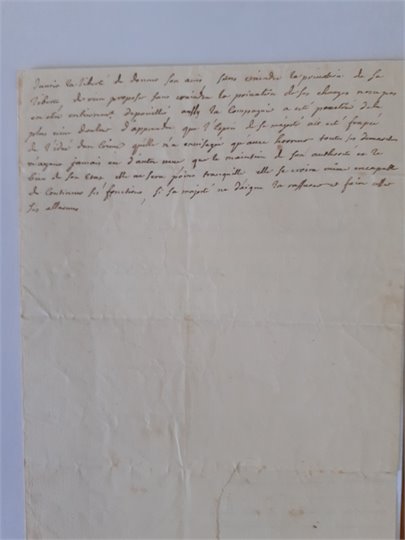 la liberté de donner son avis sans craindre la privation de sa
liberté de rien proposer sans craindre la privation de ses charges
entierement depouillé aussy la Compagnie a été penetrée de la
plus vive douleur d'apprendre que l'esprit de sa majesté ait été frapé
de l'idée d'un Crime qu'elle n'a envisagé qu'avec horreur toutes ses demarches
n'ayant jamais eu d'autre que le maintien de son authorité et le
bien de son Etat elle ne sera point tranquille elle se croira même incapable
de continuer ses fonctions si sa majesté ne daigne la rassurer et faire cesser
ses allarmes